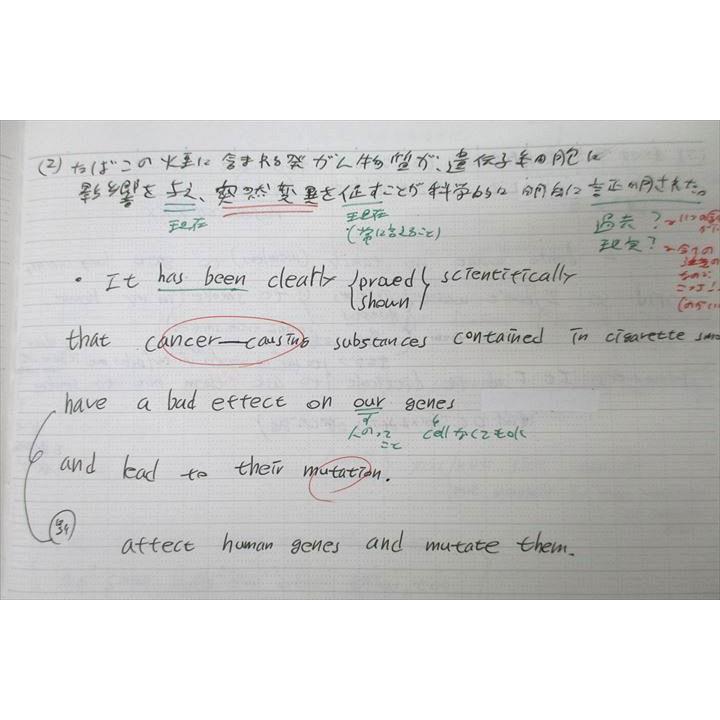 (2) たばこの火玉に含まれる発がん物質が、遺伝子細胞に
影響を与え、突然変異を促すことが科学的に明白に証明された。
現在
現在
(常に言えること)
過去?
現完?
· It has been clearly {proved shown} scientifically
that cancer-causing substances contained in cigarette smo
have a bad effect on our genes
人のって
こと
cellなくてもOK
and lead to their mutation.
別
affect human genes and mutate them.